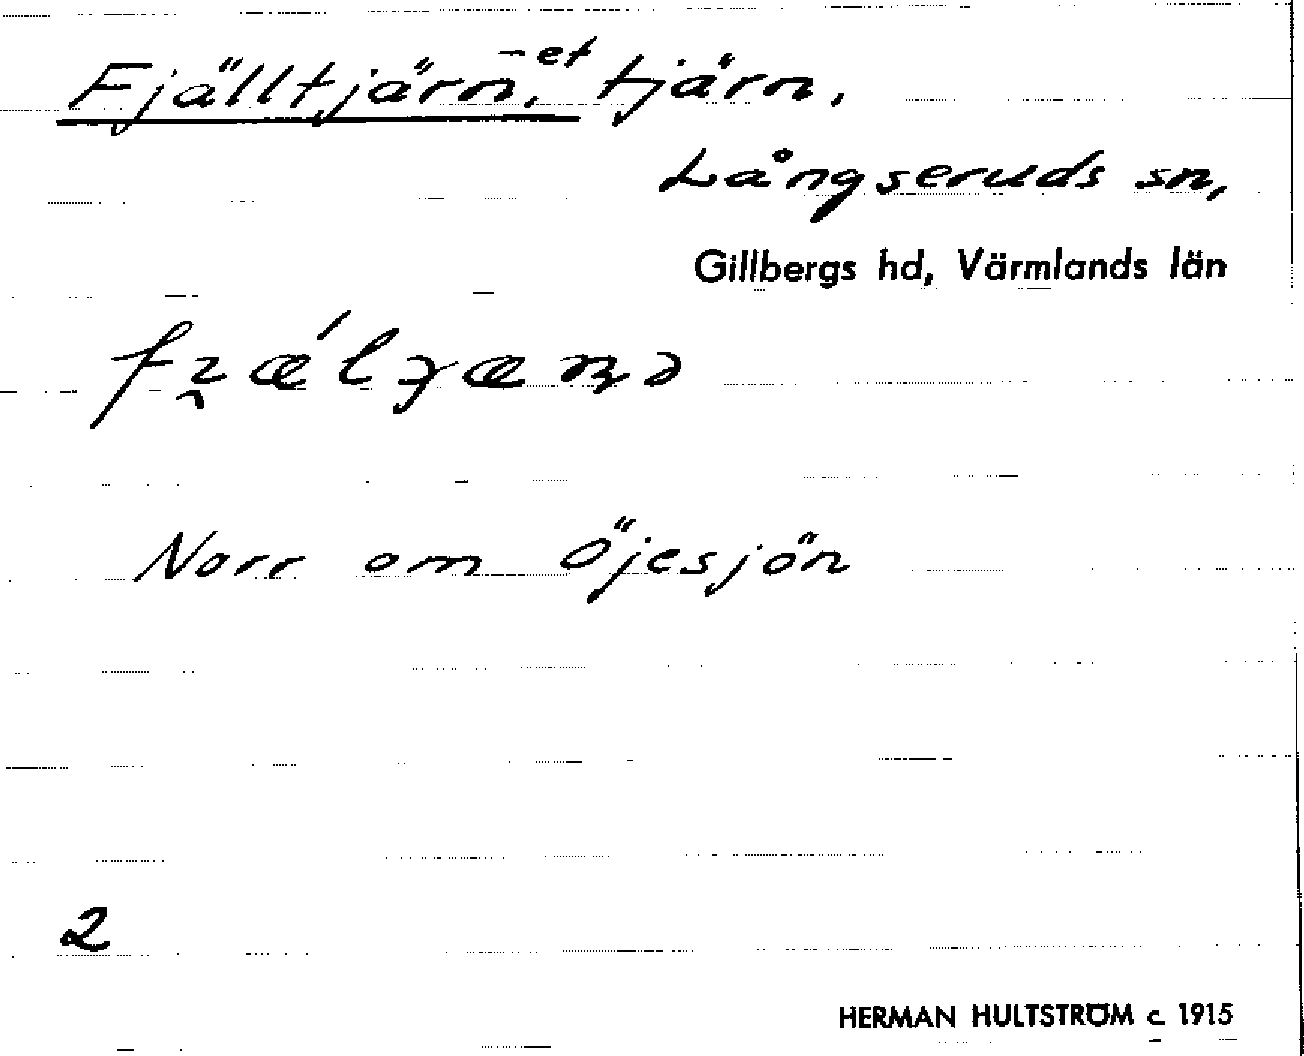 Fjälltjärn, -et tjärn,
Långseruds sn,
Gillbergs hd, Värmlands län
Norr om Öjesjön
2
HERMAN HULTSTRÖM c. 1915